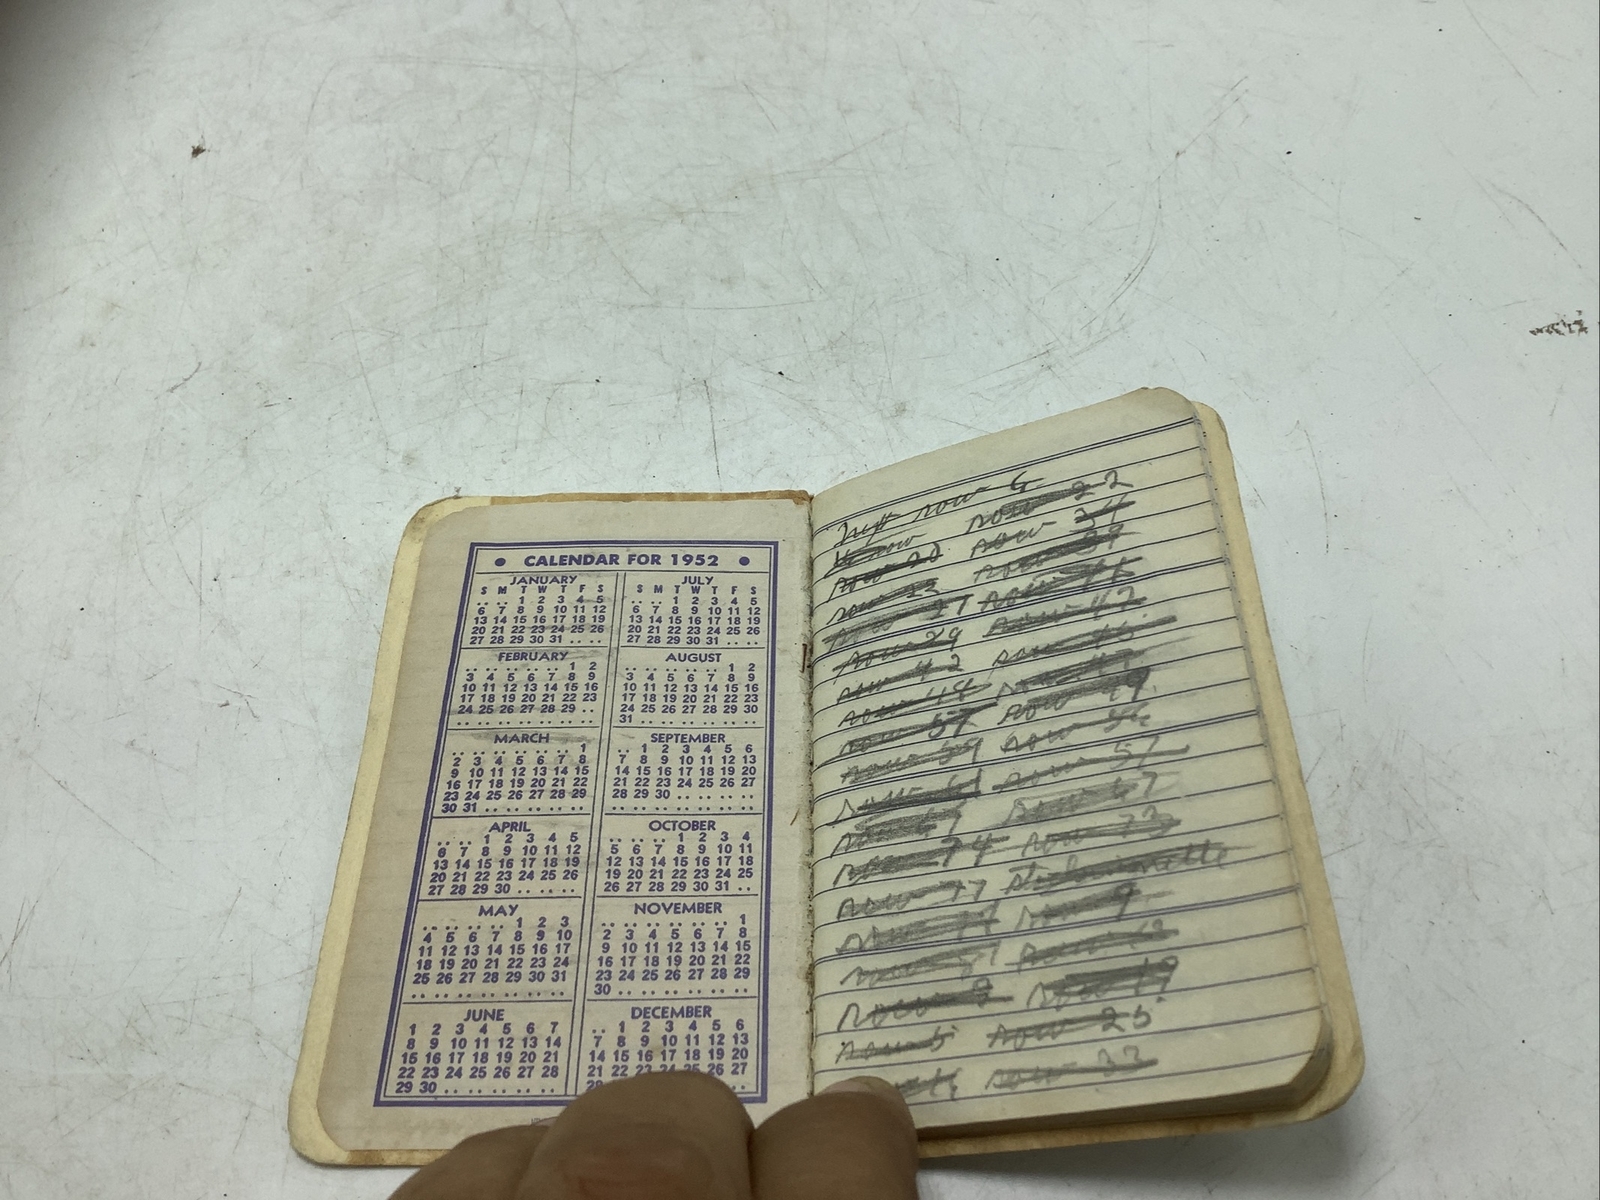 CALENDAR FOR 1952
JANUARY
S M T W T F S
.. .. 1 2 3 4 5
6 7 8 9 10 11 12
13 14 15 16 17 18 19
20 21 22 23 24 25 26
27 28 29 30 31 .. ..
FEBRUARY
.. .. .. .. .. 1 2
3 4 5 6 7 8 9
10 11 12 13 14 15 16
17 18 19 20 21 22 23
24 25 26 27 28 29 ..
.. .. .. .. .. .. ..
MARCH
.. .. .. .. .. .. 1
2 3 4 5 6 7 8
9 10 11 12 13 14 15
16 17 18 19 20 21 22
23 24 25 26 27 28 29
30 31 .. .. .. .. ..
APRIL
.. .. 1 2 3 4 5
6 7 8 9 10 11 12
13 14 15 16 17 18 19
20 21 22 23 24 25 26
27 28 29 30 .. .. ..
MAY
.. .. .. .. 1 2 3
4 5 6 7 8 9 10
11 12 13 14 15 16 17
18 19 20 21 22 23 24
25 26 27 28 29 30 31
.. .. .. .. .. .. ..
JUNE
1 2 3 4 5 6 7
8 9 10 11 12 13 14
15 16 17 18 19 20 21
22 23 24 25 26 27 28
29 30 .. .. .. .. ..
JULY
S M T W T F S
.. .. 1 2 3 4 5
6 7 8 9 10 11 12
13 14 15 16 17 18 19
20 21 22 23 24 25 26
27 28 29 30 31 .. ..
AUGUST
.. .. .. .. .. 1 2
3 4 5 6 7 8 9
10 11 12 13 14 15 16
17 18 19 20 21 22 23
24 25 26 27 28 29 30
31 .. .. .. .. .. ..
SEPTEMBER
.. 1 2 3 4 5 6
7 8 9 10 11 12 13
14 15 16 17 18 19 20
21 22 23 24 25 26 27
28 29 30 .. .. .. ..
.. .. .. .. .. .. ..
OCTOBER
.. .. .. 1 2 3 4
5 6 7 8 9 10 11
12 13 14 15 16 17 18
19 20 21 22 23 24 25
26 27 28 29 30 31 ..
NOVEMBER
.. .. .. .. .. .. 1
2 3 4 5 6 7 8
9 10 11 12 13 14 15
16 17 18 19 20 21 22
23 24 25 26 27 28 29
30 .. .. .. .. .. ..
DECEMBER
.. 1 2 3 4 5 6
7 8 9 10 11 12 13
14 15 16 17 18 19 20
21 22 23 24 25 26 27
row
row row 22
row 20 row 34
row 23 row 39
row 27 row
row 29 row 47
row 42 row
row 44
row 57 row 49
row 59 row
row row 51
row row 67
row 74 row 73
row 77
row row 9
row row
row row 19
row 5 row 25
row 33